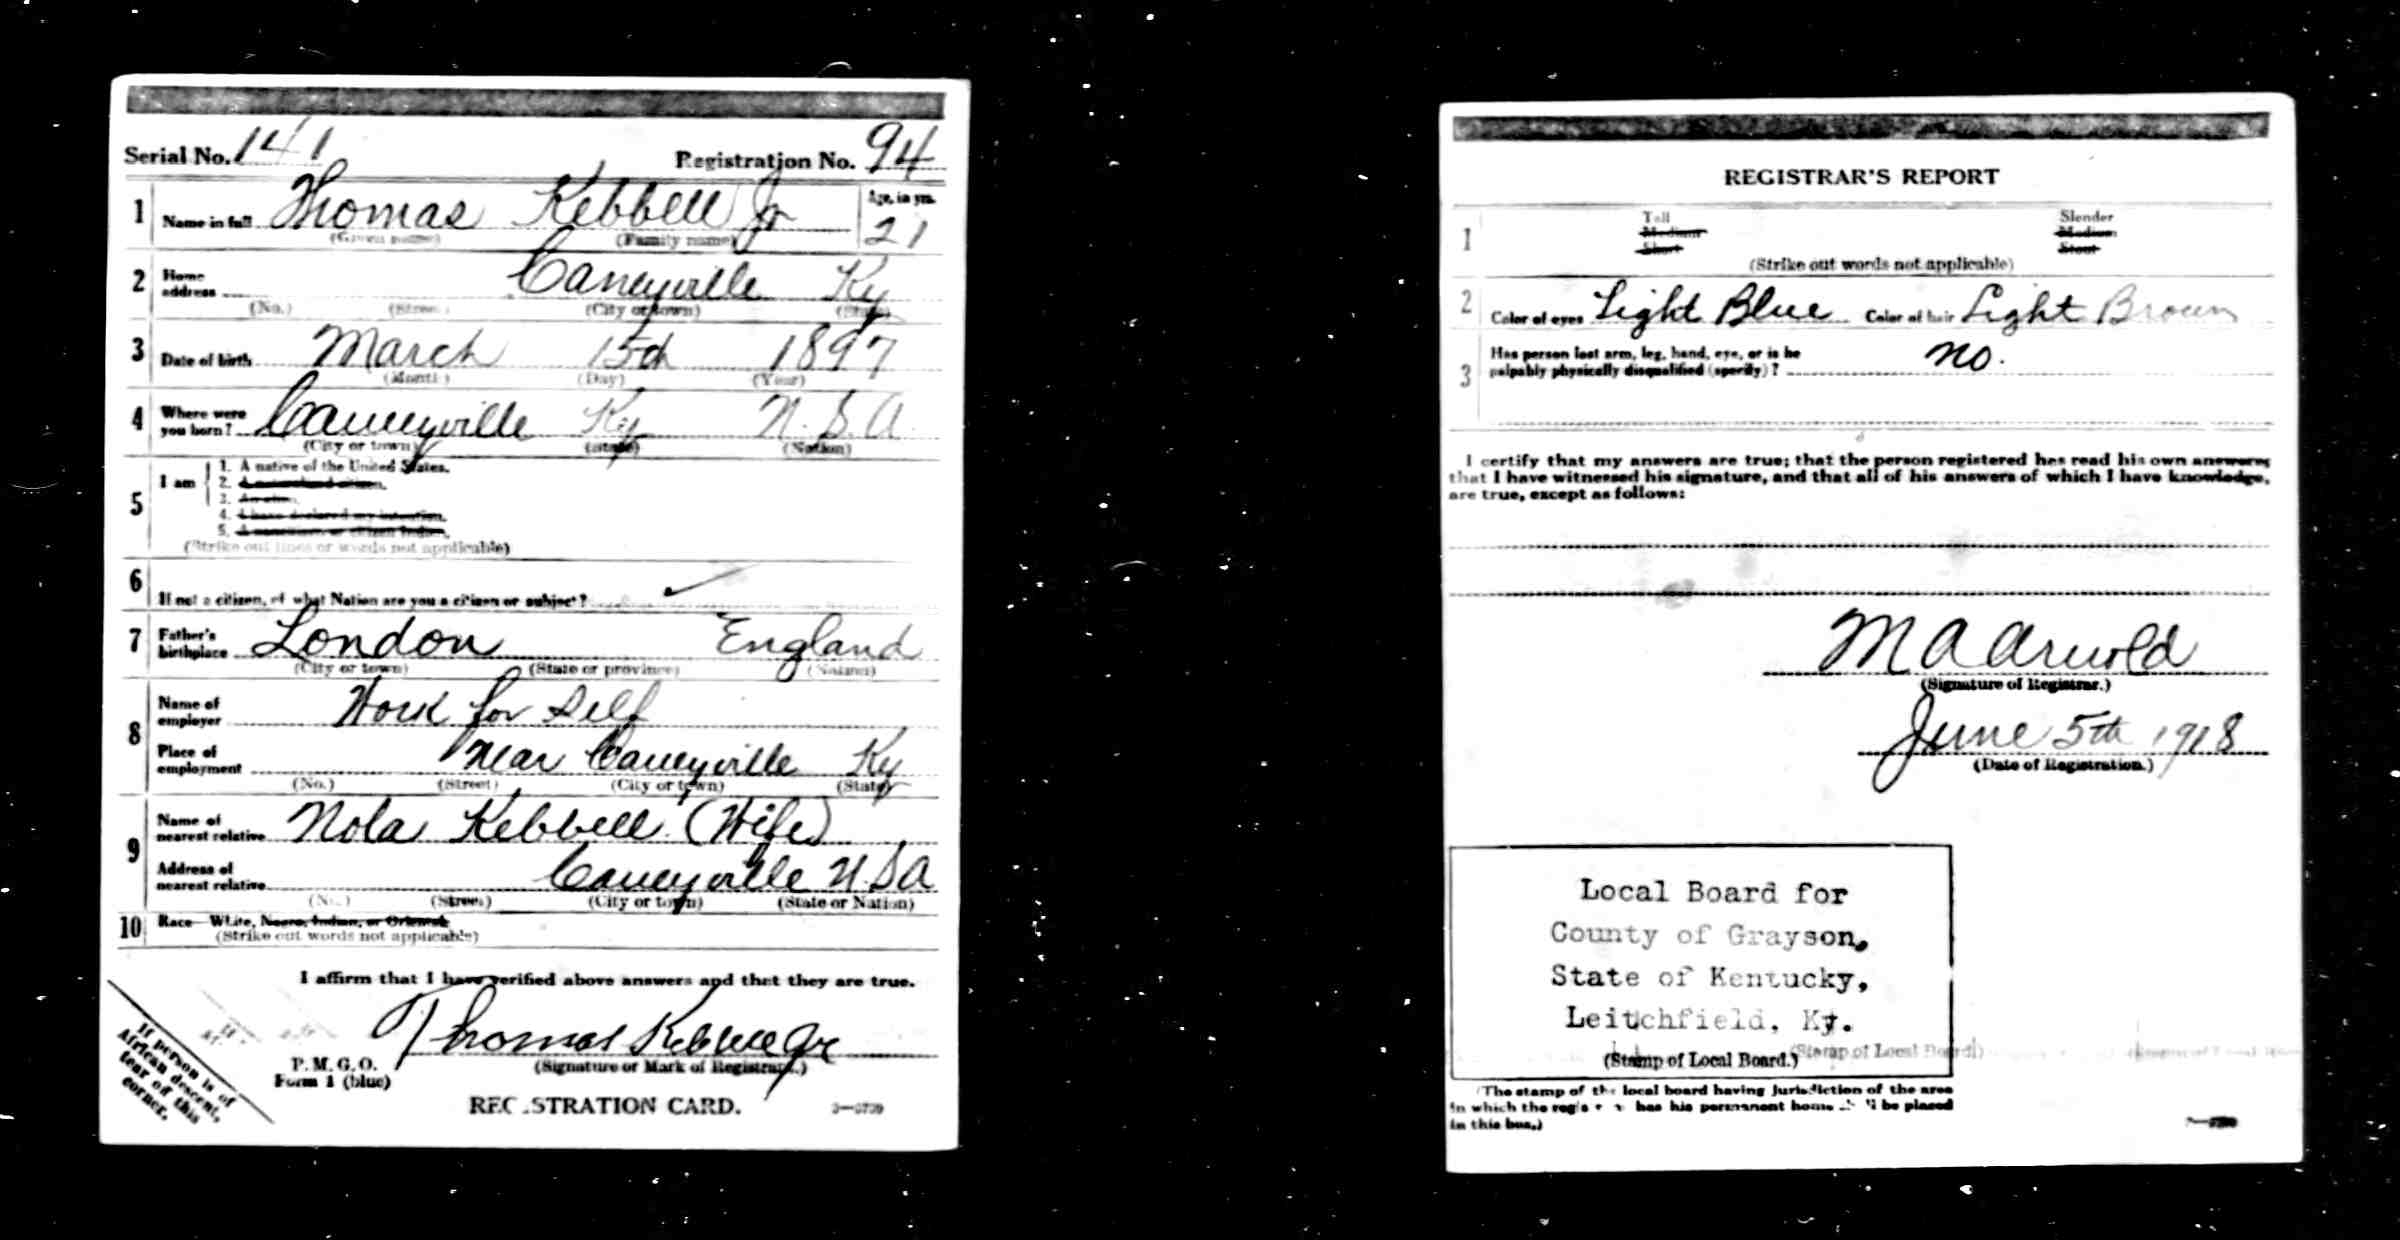 Serial No. 141 Registration No. 94
1 Name in full Thomas Kebbell Jr Age, in yrs. 21
(Given name) (Family name)
2 Home address Caneyville Ky
(No.) (Street) (City or town) (State)
3 Date of birth March 15th 1897
(Month) (Day) (Year)
4 Where were you born? Caneyville Ky U.S.A.
(City or town) (State) (Nation)
5 I am
1. A native of the United States.
2. A naturalized citizen.
3. An alien.
4. I have declared my intention.
5. A noncitizen or citizen Indian.
(Strike out lines or words not applicable)
6 If not a citizen, of what Nation are you a citizen or subject?
7 Father's birthplace London England
(City or town) (State or province) (Nation)
8 Name of employer Work for self
Place of employment near Caneyville Ky
(No.) (Street) (City or town) (State)
9 Name of nearest relative Nola Kebbell (Wife)
Address of nearest relative Caneyville U.S.A
(No.) (Street) (City or town) (State or Nation)
10 Race—White, Negro, Indian, or Oriental
(Strike out words not applicable)
I affirm that I have verified above answers and that they are true.
Thomas Kebbell Jr
(Signature or Mark of Registrant.)
P. M. G. O.
Form 1 (blue)
REGISTRATION CARD.
If person is of
African descent,
tear off this
corner.
REGISTRAR'S REPORT
1 Tall Slender
Medium Medium
Short Stout
(Strike out words not applicable)
2 Color of eyes Light Blue Color of hair Light Brown
3 Has person lost arm, leg, hand, eye, or is he
palpably physically disqualified (specify)? no.
I certify that my answers are true; that the person registered has read his own answers;
that I have witnessed his signature, and that all of his answers of which I have knowledge,
are true, except as follows:
M A Arnold
(Signature of Registrar.)
June 5th 1918
(Date of Registration.)
Local Board for
County of Grayson,
State of Kentucky,
Leitchfield, Ky.
(Stamp of Local Board.) (Stamp of Local Board)
(The stamp of the local board having jurisdiction of the area
in which the registrant has his permanent home shall be placed
in this box.)